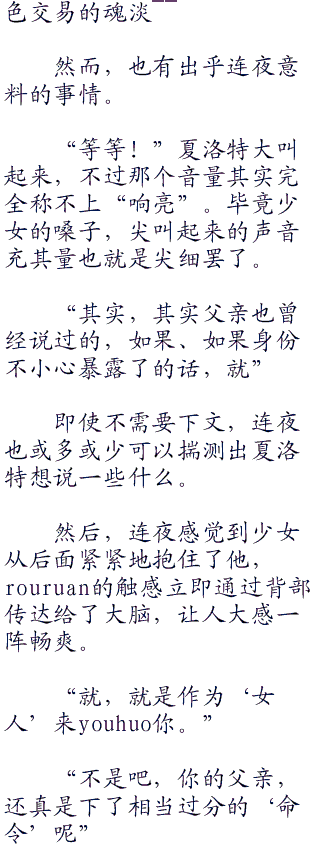 色交易的魂淡
然而，也有出乎连夜意
料的事情。
“等等！”夏洛特大叫
起来，不过那个音量其实完
全称不上“响亮”。毕竟少
女的嗓子，尖叫起来的声音
充其量也就是尖细罢了。
“其实，其实父亲也曾
经说过的，如果、如果身份
不小心暴露了的话，就”
即使不需要下文，连夜
也或多或少可以揣测出夏洛
特想说一些什么。
然后，连夜感觉到少女
从后面紧紧地抱住了他，
rouruan的触感立即通过背部
传达给了大脑，让人大感一
阵畅爽。
“就，就是作为‘女
人’来youhuo你。”
“不是吧，你的父亲，
还真是下了相当过分的‘命
令’呢”